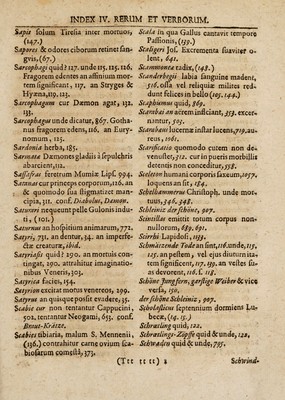 INDEX IV. RERUM ET VERBORUM.
Sapis solum Tiresia inter mortuos,
(147.)
Sapores & odores ciborum retinet san-
gvis, (67.)
Sarcophagi quid? 127. unde 115. 125. 126.
Fragorem edentes an affinium mor-
tem significant, 117. an Stryges &
Hyæna, 119. 123.
Sarcophagus cum Dæmon agat, 132.
133.
Sarcophagus unde dicatur, 867. Gotha-
nus fragorem edens, 116. an Eury-
nomum, 123.
Sardonia herba, 185.
Sarmata Dæmones gladiis à sepulchris
abarcient, 112.
Sassafras feretrum Mumiæ Lipf. 994.
Satanas cur princeps corporum, 126. an
& quomodo sua stigmatizet man-
cipia, 311. conf. Diabolus, Dæmon.
Satureri nequeunt pelle Gulonis indu-
ti, (101.)
Saturnus an hospitium animarum, 772.
Satyri, 731. an dentur, 34. an imperfe-
ctæ creaturæ, ibid.
Satyriasis quid? 290. an mortuis con-
tingat, 290. attrahitur imaginatio-
nibus Veneris, 303.
Satyrica facies, 154.
Satyrion excitat motus venereos, 299.
Satyrus an quisque possit evadere, 35.
Scabie cur non tentantur Cappucini,
502. tentantur Neogami, 655. conf.
Braut-Krätze.
Scabies tibiaria, malum S. Mennenii,
(136.) contrahitur carne ovium sca-
biosarum comestâ, 373.
Scala in qua Gallus cantavit tempore
Passionis, (139.)
Scaligeri Jos. Excrementa suaviter o-
lent, 641.
Scammonea radix, (148.)
Scanderbegii labia sanguine madent,
516. ossa vel reliquiæ milites red-
dunt felices in bello (105. 144.)
Scaphismus quid, 869.
Scarabæi an acrem insficiant, 353. excer-
nunt, 105.
Scarabæus lucernæ instar lucens, 719. au-
reus, 1061.
Scarificatio quomodo cutem non de-
venustet, 512. cur in pueris morbillis
detentis non conceditur, 558.
Sceleton humani corporis saxeum, 1057.
loquens an sit, 154.
Schellhammerus Christoph. unde mor-
tuus, 346. 348.
Schleiniz der schöne, 907.
Scinistlus emittit totum corpus non-
nullorum, 689. 691.
Scirrhi Lapidosi, 1139.
Schmäzende Todte an sint, 116. unde, 115,
127. an pestem, vel ejus diuturnita-
tem significent, 117. 139. an vestes su-
as devorent, 116. s. 118.
Schöne Jungfern, garstige Weiber & vice
versa, 150.
der schöne Schleiniz, 907.
Scholastium septennium dormiens Lu-
becæ, (14. 15.)
Schrætling quid, 122.
Schrætlings-Zöpffe quid & unde, 122.
Schwadem quid & unde, 735.
(Ttt tt tt) 2
Schwind-